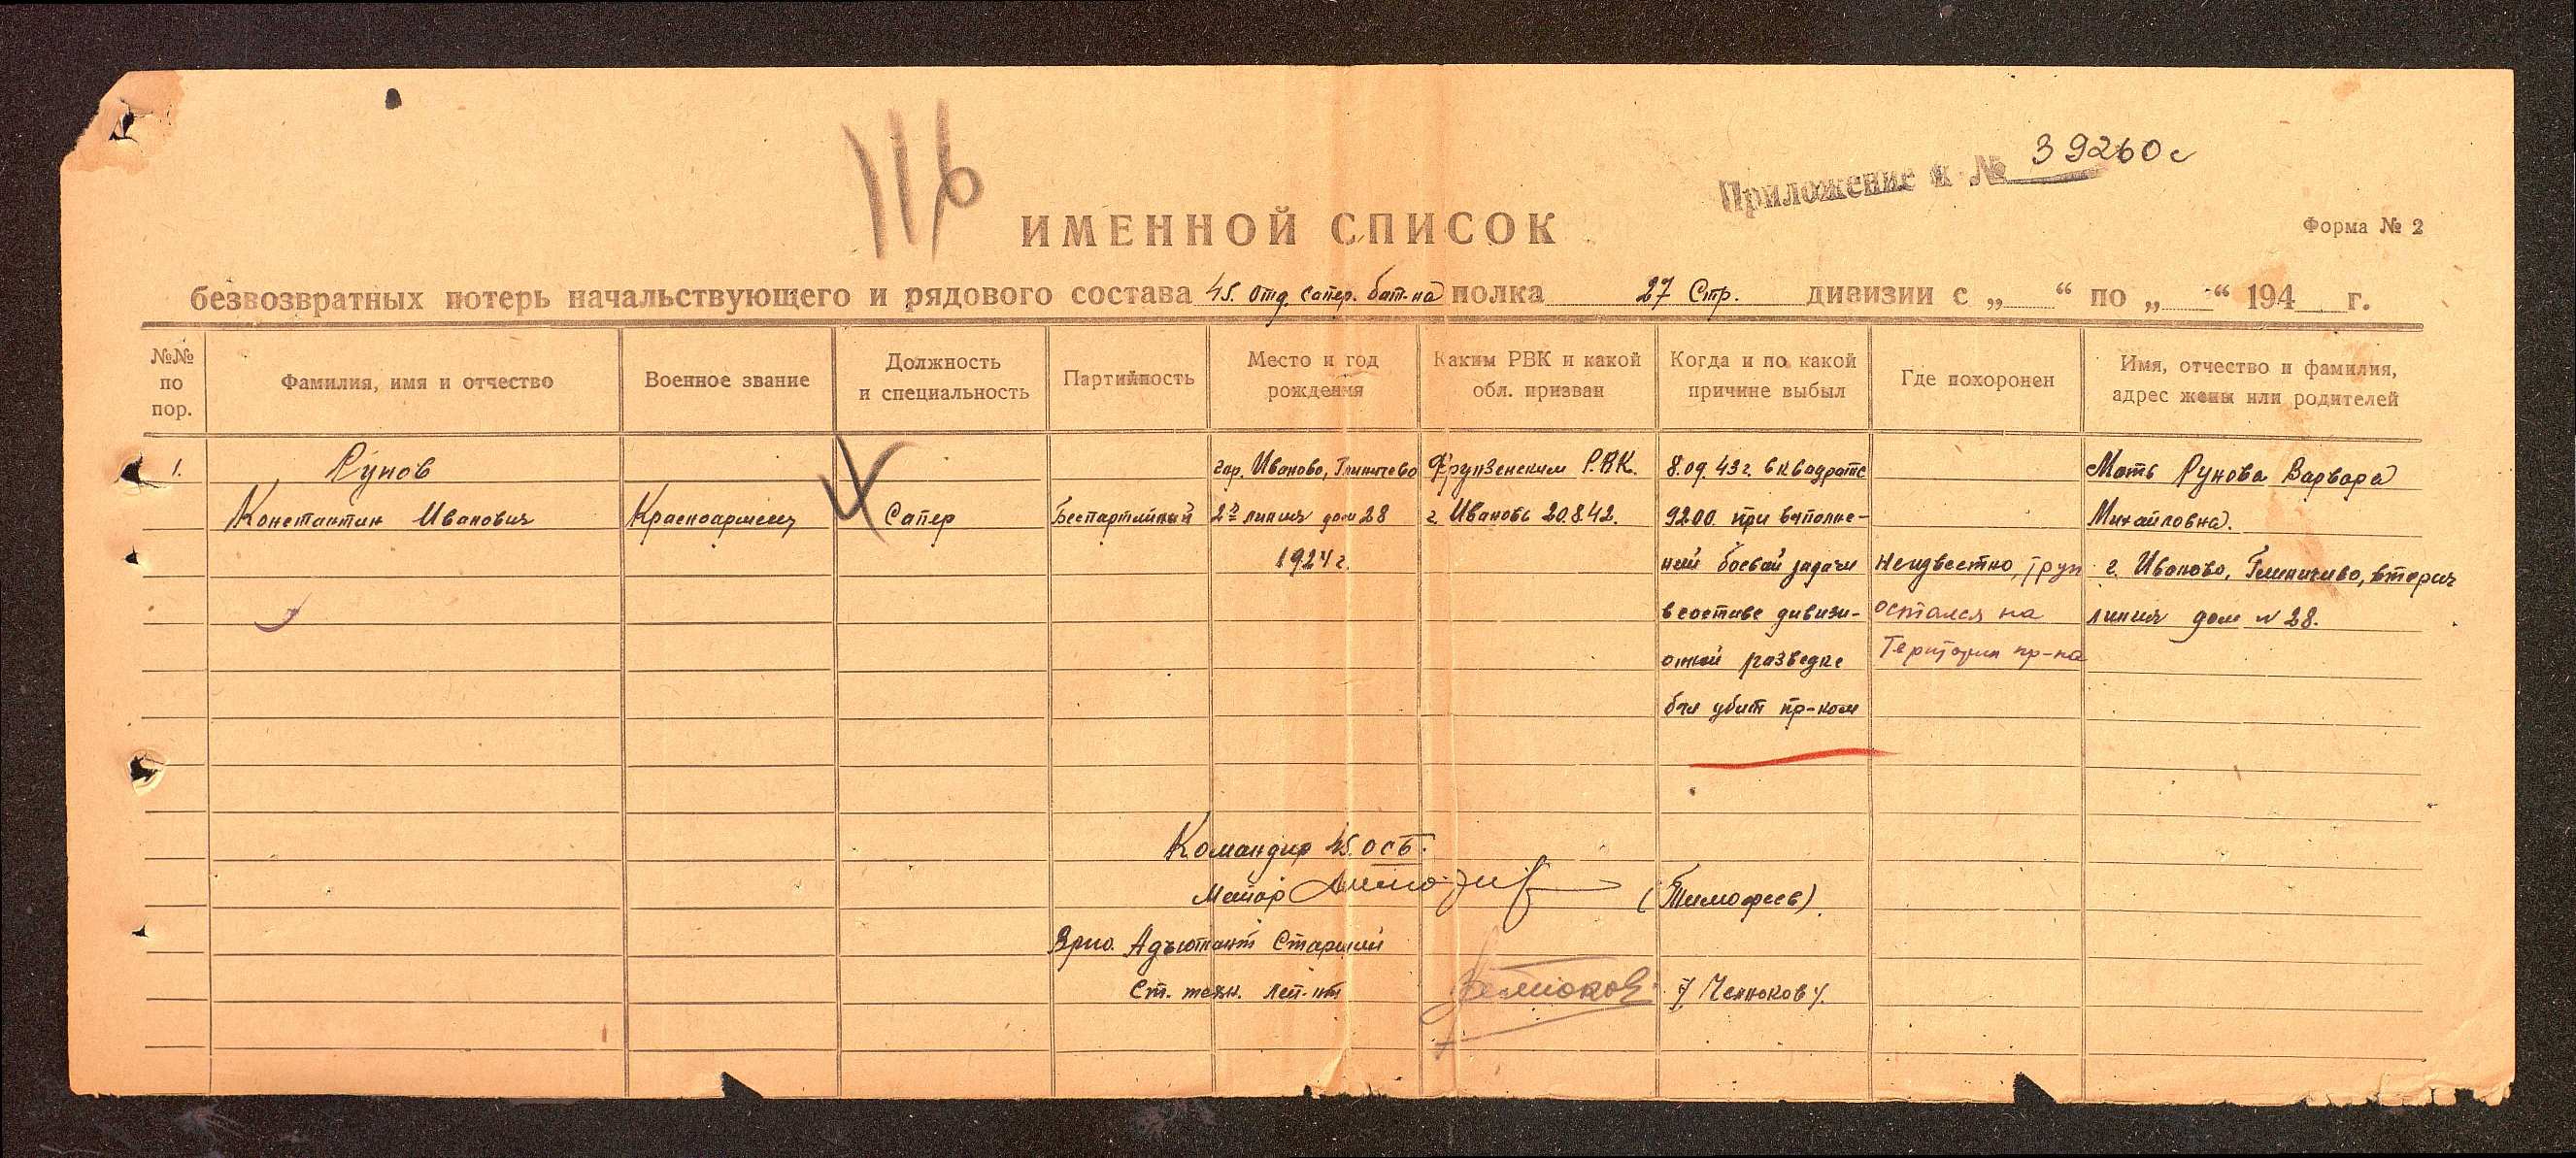 116
Приложение к № 39260с
ИМЕННОЙ СПИСОК
Форма № 2
безвозвратных потерь начальствующего и рядового состава 45. отд. сапер. бат-на полка 27 Стр. дивизии с „ “ по „ “ 194 г.
№№ по пор.
Фамилия, имя и отчество
Военное звание
Должность
и специальность
Партийность
Место и год
рождения
Каким РВК и какой
обл. призван
Когда и по какой
причине выбыл
Где похоронен
Имя, отчество и фамилия,
адрес жены или родителей
1.
Рунов
Константин Иванович
Красноармеец
Сапер
Беспартийный
гор. Иваново, Глинищево
2я линия дом 28
1924 г.
Фрунзенским Р.В.К.
г. Иваново 20.8.42.
8.09.43 г. в квадрате
9200 при выполне-
нии боевой задачи
в составе дивизи-
онной разведке
был убит пр-ком
Неизвестно, труп
остался на
Територии пр-ка
Мать Рунова Варвара
Михайловна.
г. Иваново, Глинищево, вторая
линия дом № 28.
Командир 45. ОСБ.
Майор (Тимофеев)
Врио Адъютант Старший
Ст. техн. лей-нт /Челноков/.